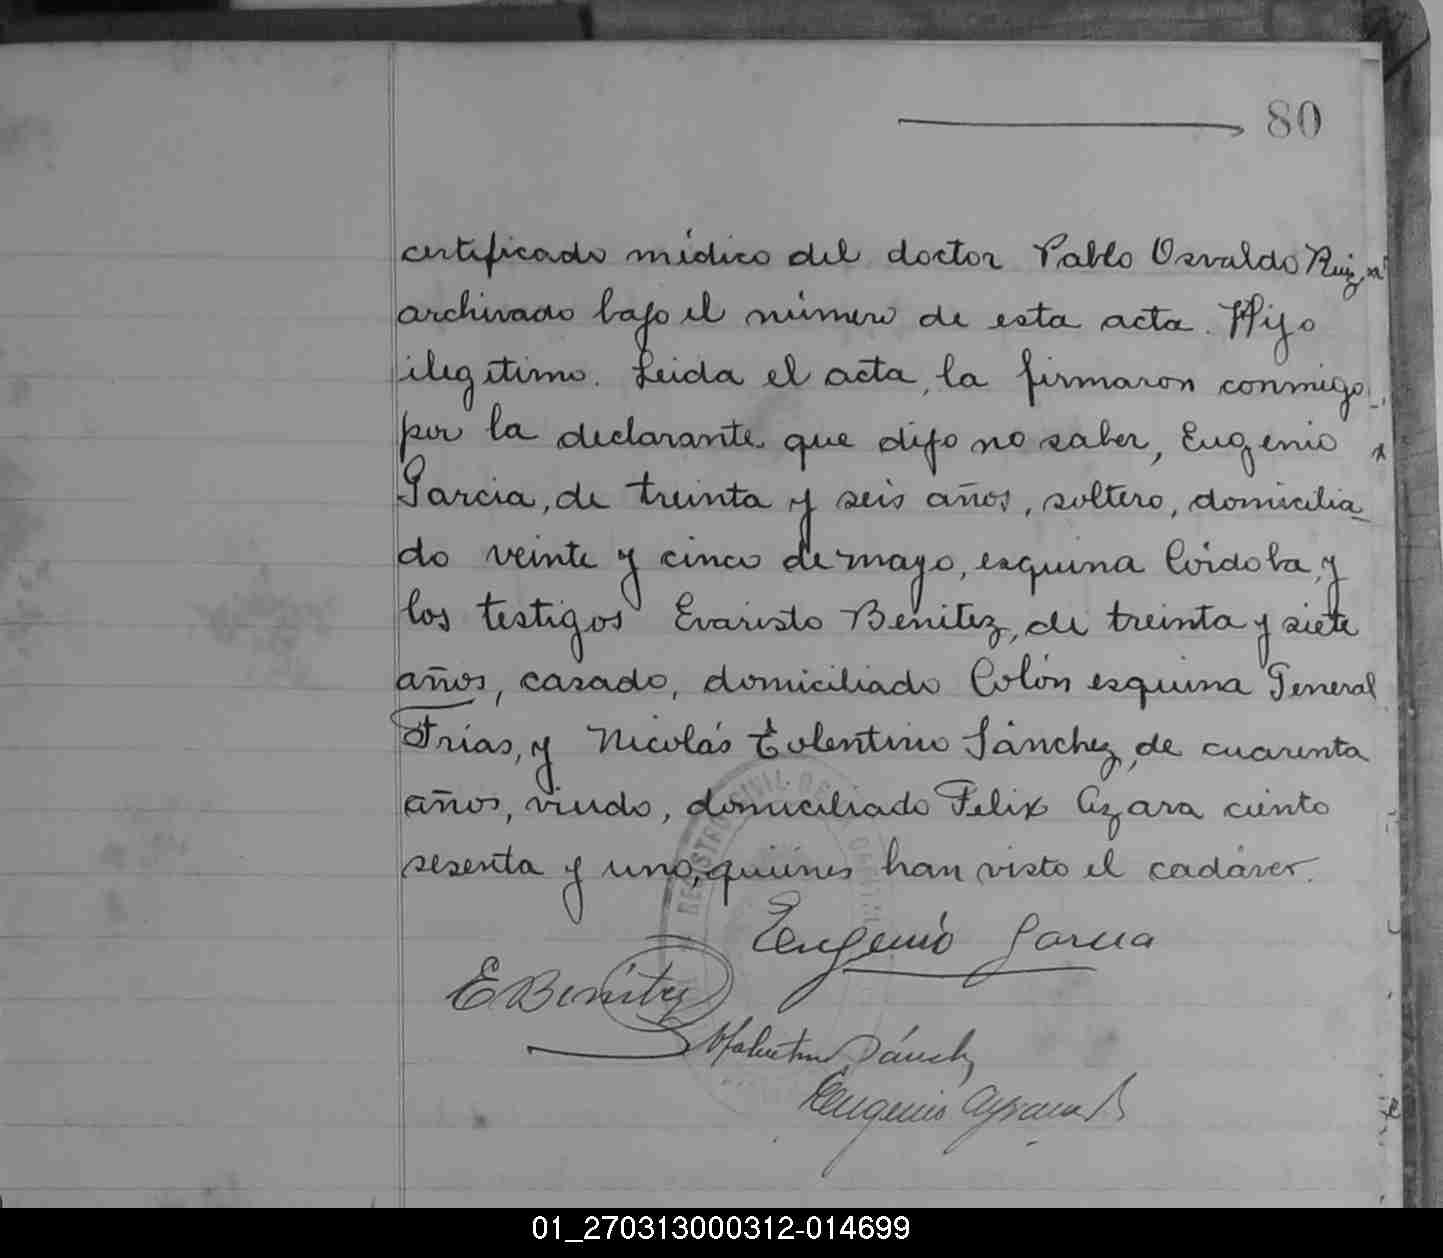 80
certificado médico del doctor Pablo Osvaldo Ruiz,
archivado bajo el número de esta acta. Hijo
ilegitimo. Leida el acta, la firmaron conmigo
por la declarante que dijo no saber, Eugenio
Garcia, de treinta y seis años, soltero, domicilia
do veinte y cinco de mayo, esquina Córdoba, y
los testigos Evaristo Benitez, de treinta y siete
años, casado, domiciliado Colón esquina General
Frías, y Nicolás Tolentino Sánchez, de cuarenta
años, viudo, domiciliado Felix Azara ciento
sesenta y uno, quiénes han visto el cadáver.
REGISTRO CIVIL DE LA
Eugenio Garcia
E Benitez
Sánchez
Eugenio
01_270313000312-014699